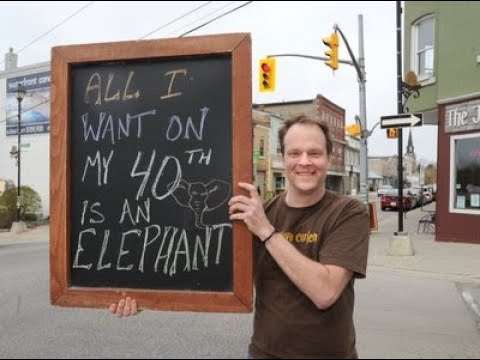 ALL I
WANT ON
MY 40TH
IS AN
ELEPHANT
The J